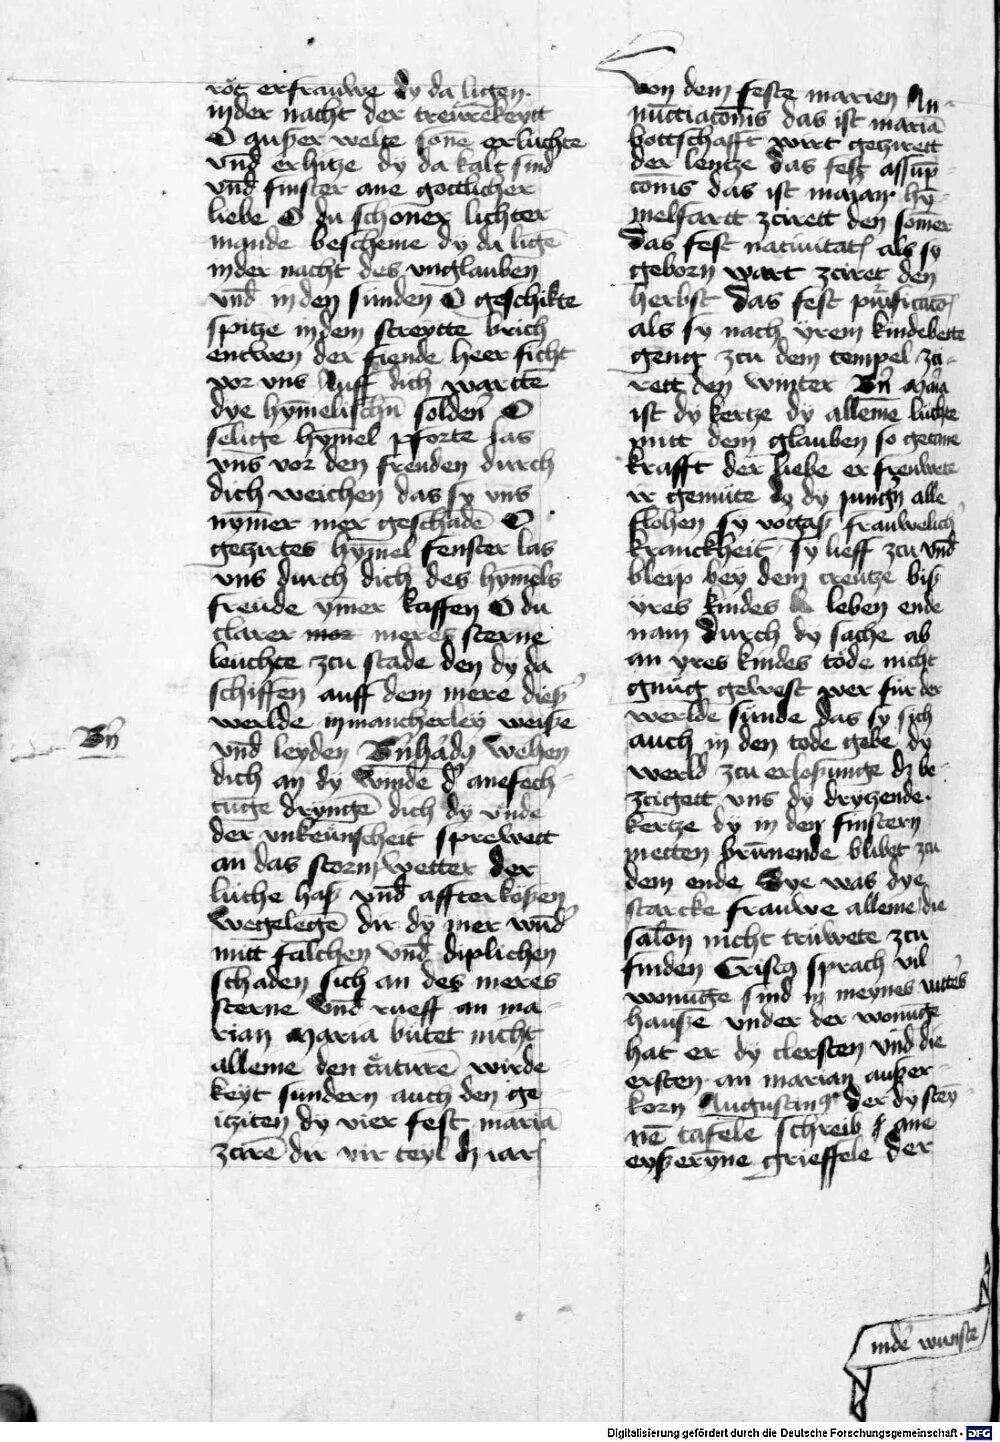 rot erfrauwe dy da ligen.
inder nacht der treurekeytt
O gutzer welte sone erluchte
vnd erhitze dy da kalt sind
vnd finster ane gotlicher
liebe O du schoner lichter
mande bescheine dy da lige
inder nacht des vnglauben
vnd in den sunden O geschikte
spitze indem streytte brich
entwen der fiende heer ficht
vor vns Auff dich wartte
dye hymelischn solden O
selige hymel pforte las
vns vor den frenden durch
dich weichen das sy vns
nymer mer geschade O
gezirtes hymel fenster las
vns durch dich des hymels
freude ymer kaffen O du
clarer meres sterne
leuchte zcu stade den dy da
schiffen auff dem mere dieß
werlde in mancherley weiße
Bn
vnd leyden Bnhadg wehen
dich an dy winde d anefech-
tuge drynge dich dy vnde
der vnkeunscheit sprewett
an das storm wetter der
luche haß vnd affterkoßen
wegelege dir dy mer wud
mitt falchen vnd diplichen
schaden sich an des meres
sterne vnd rueff an ma-
rian Maria butet nicht
alleine den cature wirde
keyt sundern auch den ge
itziten dy vier fest maria
zcire dir vir teyl dz iars
Von dem feste marien An-
nuctiaconis das ist maria
bottschafft wirt gezirett
der lentze das fest assup-
conis das ist marian hy-
melfartt zcirett den somer
das fest natiuitat als sy
geborn wart zciret den
herbst das fest purificaco
als sy nach yrem kindebette
geng zcu dem tempel zci-
rett den winter Bn Maria
ist dy kertze dy alleine luchte
mitt dem glauben so getane
krafft der liebe er freuwete
ir gemute do dy jungn alle
flohen sy vorgaß frauwelich
kranckheit sy lieff zcu vnd
bleip bey dem creutze biß
yres kindes leben ende
nam durch dy sache ab
an yres kindes tode nicht
gnug gewest wer fur der
werlde sunde das sy sich
auch in den tode gebe dy
werld zcu erloßunge dz be-
zcigett vns dy dryzende
kertze dy in den finstern
metten brunende blibet zcu
dem ende Sye was dye
starcke frauwe alleine die
salon nicht truwete zcu
finden Cristg sprach vil
wonuge sind in meynes vaters
hauße vnder der wonuge
hat er dy clersten vnd die
ersten an marian außer-
korn Augusting der dy stey-
ne tafele schreib ane
eyßeryne grieffele der
inde wunste
Digitalisierung gefördert durch die Deutsche Forschungsgemeinschaft - DFG